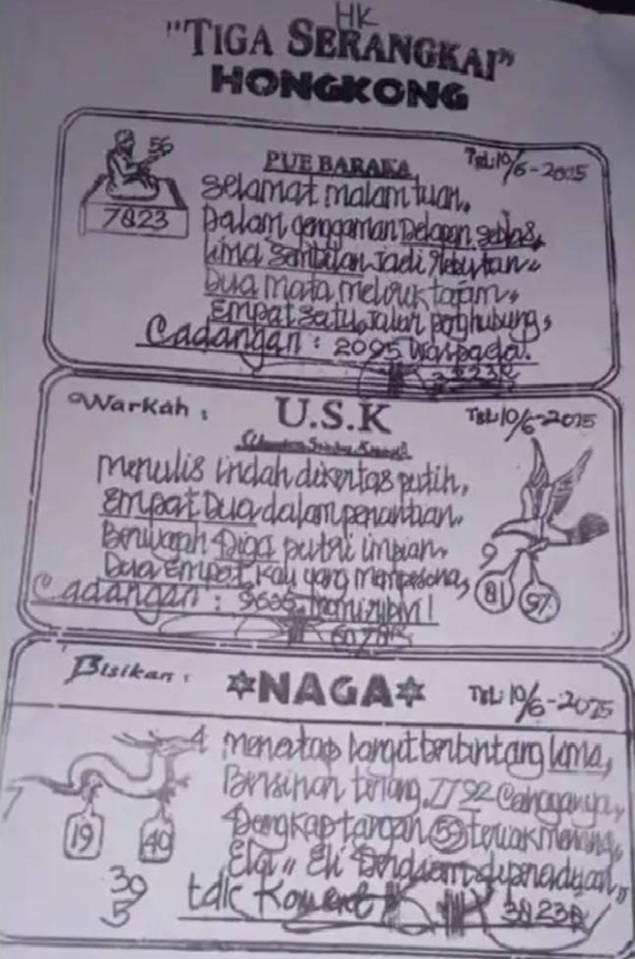 HK
"TIGA SERANGKAI"
HONGKONG
56
7823
PUE BARAKA
TGL: 10/6-2025
Selamat malam tuan,
Dalam genggaman Delapan Sebelas,
Lima Sembilan Jadi rebutan
Dua mata melirik tajam,
Empat Satu, Jalan penghubung,
Cadangan : 2095 Waspada.
Warkah :
U.S.K
TGL: 10/6-2025
menulis indah dikertas putih,
Empat Dua dalam penantian,
Berwajah Tiga putri impian,
Dua Empat, Kau yang mempesona,
Cadangan : 9635
9
81
97
Bisikan :
NAGA
TGL: 10/6-2025
menatap langit berbintang lama,
Bersinar terang, 7792 Cahayanya,
tangan 57
4
7
19
40
39
5